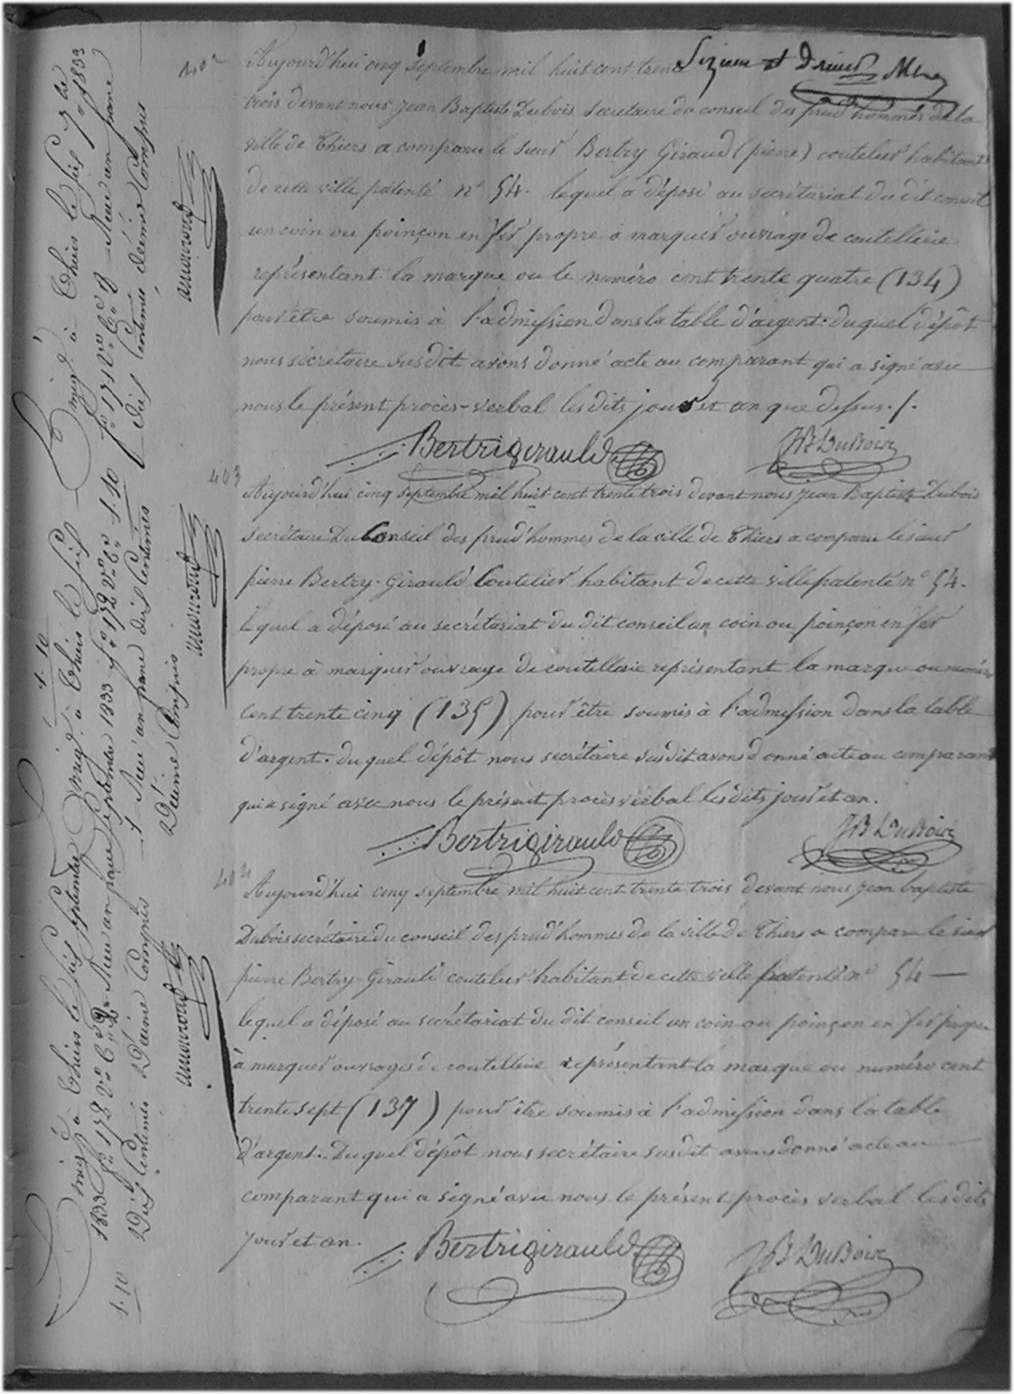 402
Aujourd'hui cinq septembre mil huit cent trente
trois devant nous jean Baptiste Dubois secretaire du conseil des prud'hommes de la
ville de Thiers a comparu le sieur Bertry Giraud (pierre) coutelier habitant
de cette ville patenté n° 54. lequel a déposé au secrétariat du dit conseil
un coin ou poinçon en fer propre a marquer ouvrage de coutellerie
représentant la marque ou le numéro cent trente quatre (134)
pour être soumis à l'admission dans la table d'argent. duquel dépôt
nous sécrétaire susdit avons donné acte au comparant qui a signé avec
nous le présent procès-verbal les dits jour et an que dessus./.
Bertrigirauld JB DuBois
403
Aujourd'hui cinq septembre mil huit cent trente trois devant nous jean Baptiste Dubois
secrétaire Du Conseil des prud'hommes de la ville de Thiers a comparu le sieur
pierre Bertry-Girauld Coutelier habitant de cette ville patenté n° 54.
lequel a déposé au secrétariat du dit conseil un coin ou poinçon en fer
propre à marquer ouvrage de coutellerie représentant la marque ou numéro
cent trente cinq (135) pour être soumis à l'admission dans la table
d'argent. duquel dépôt nous secrétaire susdit avons donné acte au comparant
qui a signé avec nous le présent procès verbal les dits jour et an.
Bertrigirauld JB DuBois
404
Aujourd'hui cinq septembre mil huit cent trente trois devant nous jean baptiste
Dubois secrétaire du conseil des prud'hommes de la ville de Thiers a comparu le sieur
pierre Bertry-Girauld coutelier habitant de cette ville patenté n° 54 —
lequel a déposé au secrétariat du dit conseil un coin ou poinçon en fer propre
à marquer ouvrages de coutellerie représentant la marque ou numéro cent
trente sept (137) pour être soumis à l'admission dans la table
d'argent. Duquel dépôt nous secrétaire susdit avons donné acte au
comparant qui a signé avec nous le présent procès verbal les dits
jour et an.
Bertrigirauld JB DuBois
à Thiers le six 7bre 1833
dix centimes décime Compris
1.10
à Thiers le six
Septembre 1833 f° 172
un franc dix Centimes
Décime Compris
1.10
à Thiers le six Septembre
1833 f° 172 un franc
Dix Centimes Décime Compris
1.10